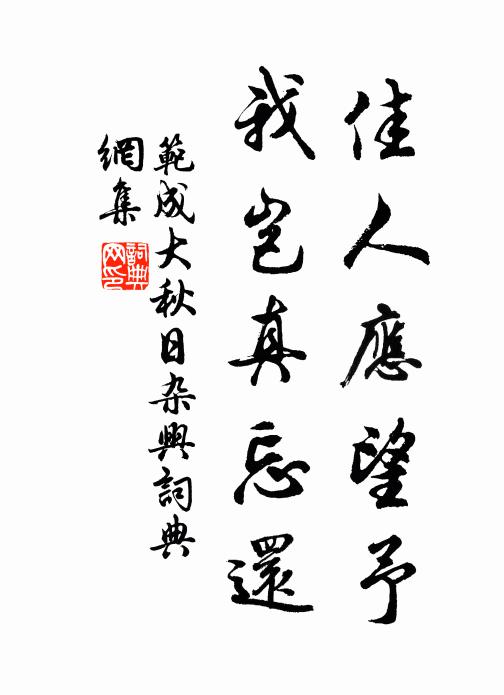 佳人應望予
我豈真忘還
範成大秋日杂興詞典
網集
詞典
网印